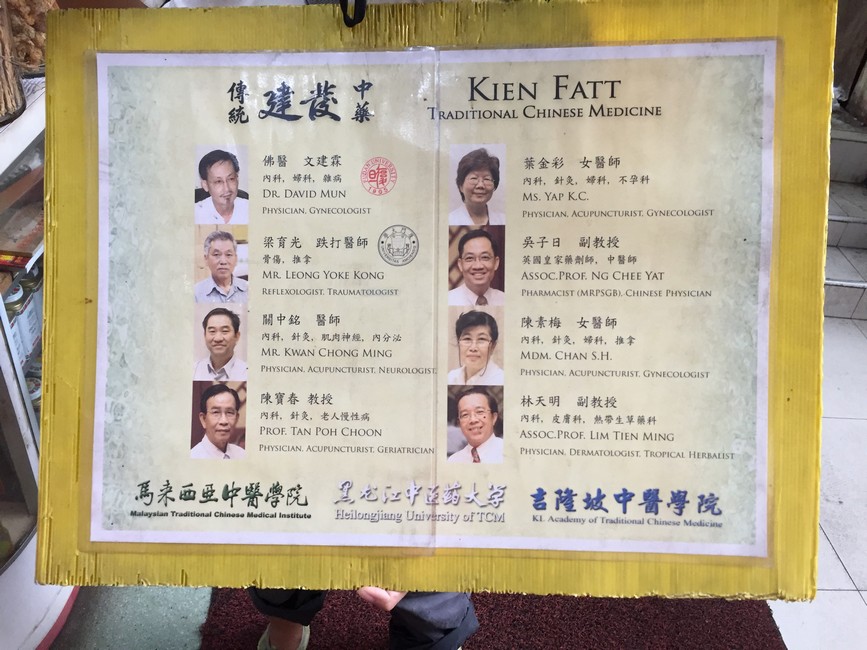 傳統 建發 中藥
KIEN FATT
TRADITIONAL CHINESE MEDICINE
佛醫 文建霖
內科, 婦科, 雜病
DR. DAVID MUN
PHYSICIAN, GYNECOLOGIST
梁育光 跌打醫師
骨傷, 推拿
MR. LEONG YOKE KONG
REFLEXOLOGIST, TRAUMATOLOGIST
關中銘 醫師
內科, 針灸, 肌肉神經, 內分泌
MR. KWAN CHONG MING
PHYSICIAN, ACUPUNCTURIST, NEUROLOGIST
陳寶春 教授
內科, 針灸, 老人慢性病
PROF. TAN POH CHOON
PHYSICIAN, ACUPUNCTURIST, GERIATRICIAN
葉金彩 女醫師
內科, 針灸, 婦科, 不孕科
MS. YAP K.C.
PHYSICIAN, ACUPUNCTURIST, GYNECOLOGIST
吳子日 副教授
英國皇家藥劑師, 中醫師
ASSOC.PROF. NG CHEE YAT
PHARMACIST (MRPSGB), CHINESE PHYSICIAN
陳素梅 女醫師
內科, 針灸, 婦科, 推拿
MDM. CHAN S.H.
PHYSICIAN, ACUPUNCTURIST, GYNECOLOGIST
林天明 副教授
內科, 皮膚科, 熱帶生草藥科
ASSOC.PROF. LIM TIEN MING
PHYSICIAN, DERMATOLOGIST, TROPICAL HERBALIST
馬来西亞中醫學院
Malaysian Traditional Chinese Medical Institute
黑龙江中医药大学
Heilongjiang University of TCM
吉隆坡中醫學院
KL Academy of Traditional Chinese Medicine